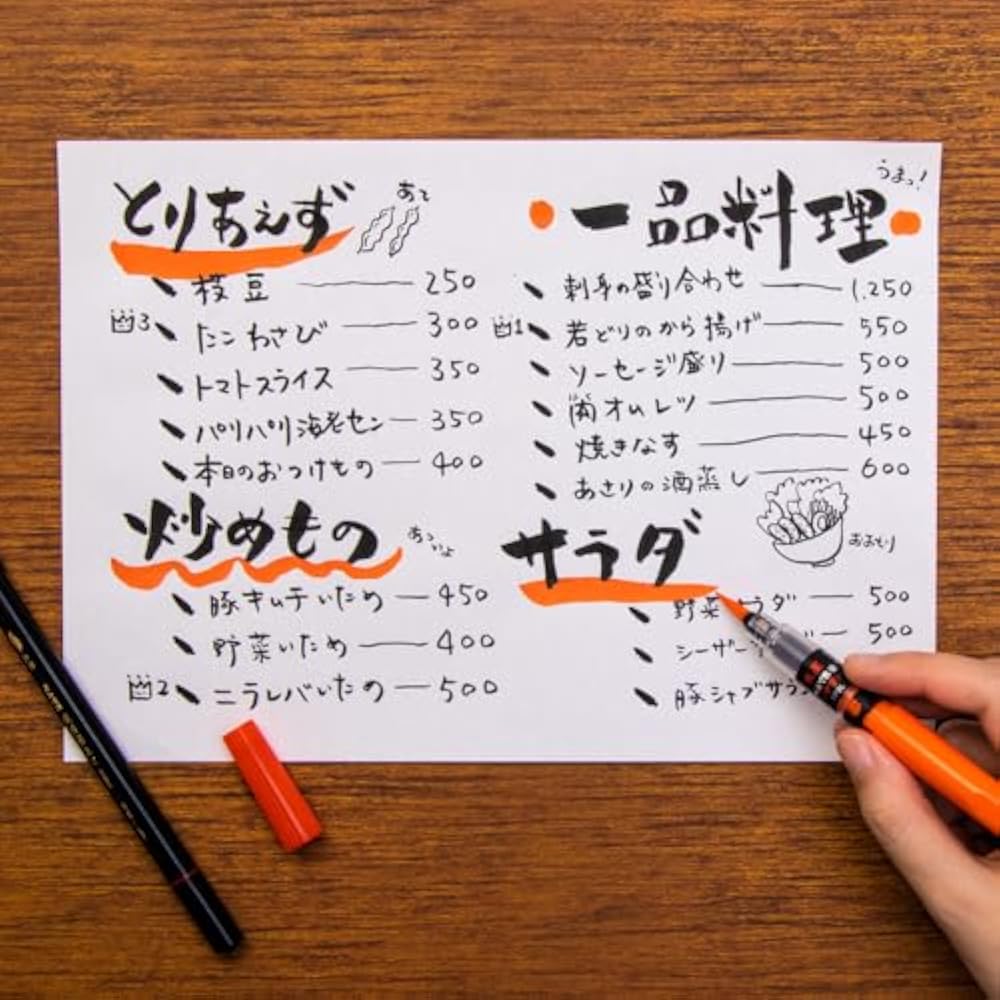 とりあえず
あて
枝豆 250
3 たこわさび 300
トマトスライス 350
パリパリ海老セン 350
本日のおつけもの 400
炒めもの
あっついよ
豚キムチいため 450
野菜いため 400
2 ニラレバいため 500
一品料理
うまっ!
刺身の盛り合わせ 1.250
1 若どりのから揚げ 550
ソーセージ盛り 500
オムレツ 500
焼きなす 450
あさりの酒蒸し 600
サラダ
おおもり
野菜 ラダ 500
シーザー 500
豚シャブサラ